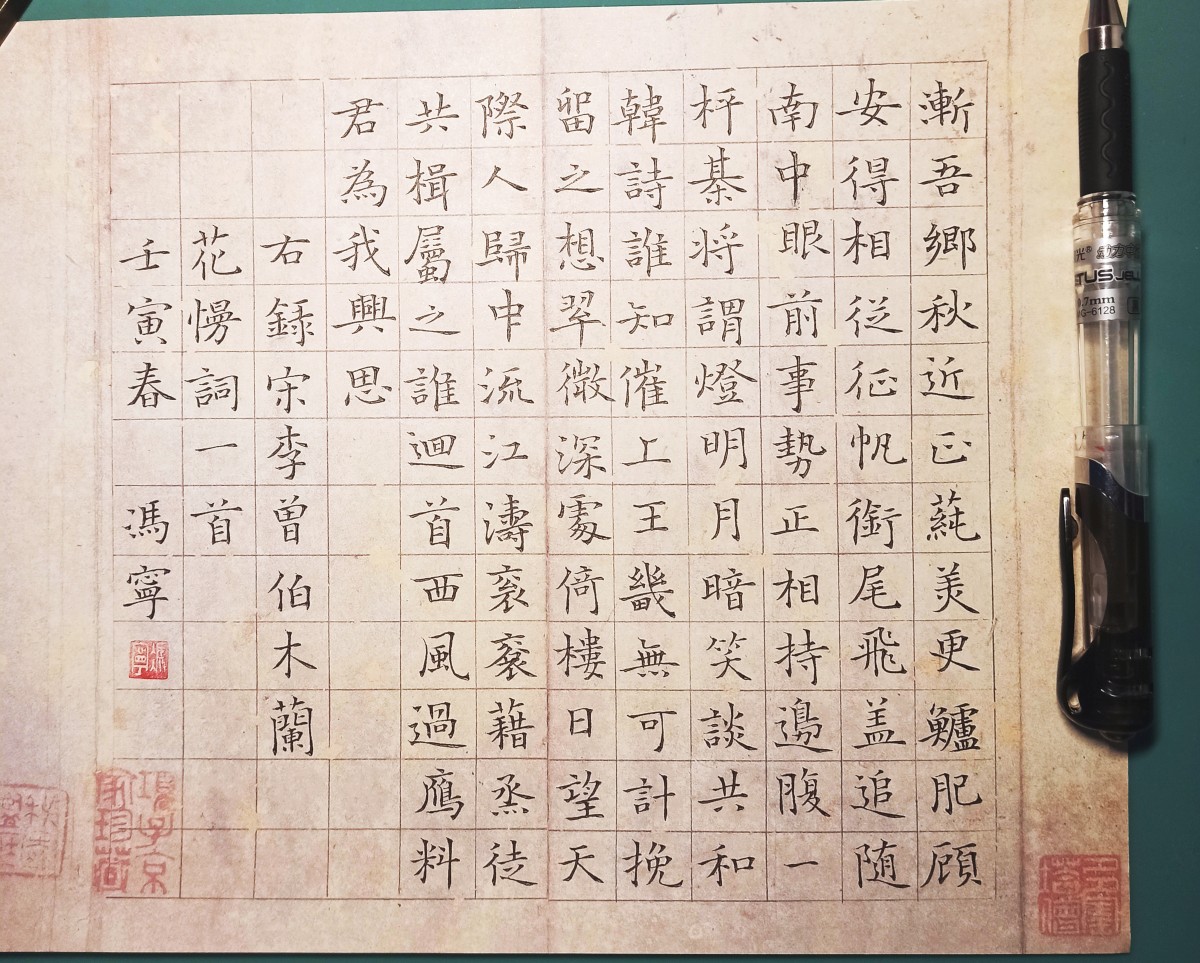 漸吾鄉秋近正蒓美更鱸肥顧
安得相從征帆銜尾飛盖追随
南中眼前事勢正相持邊腹一
枰棊将謂燈明月暗笑談共和
韓詩誰知催上王畿無可計挽
留之想翠微深處倚樓日望天
際人歸中流江濤衮衮藉烝徒
共楫屬之誰迴首西風過鴈料
君為我興思
右録宋李曾伯木蘭
花慢詞一首
壬寅春 馮寧
馮寧
項子京家珍藏
0.7mm